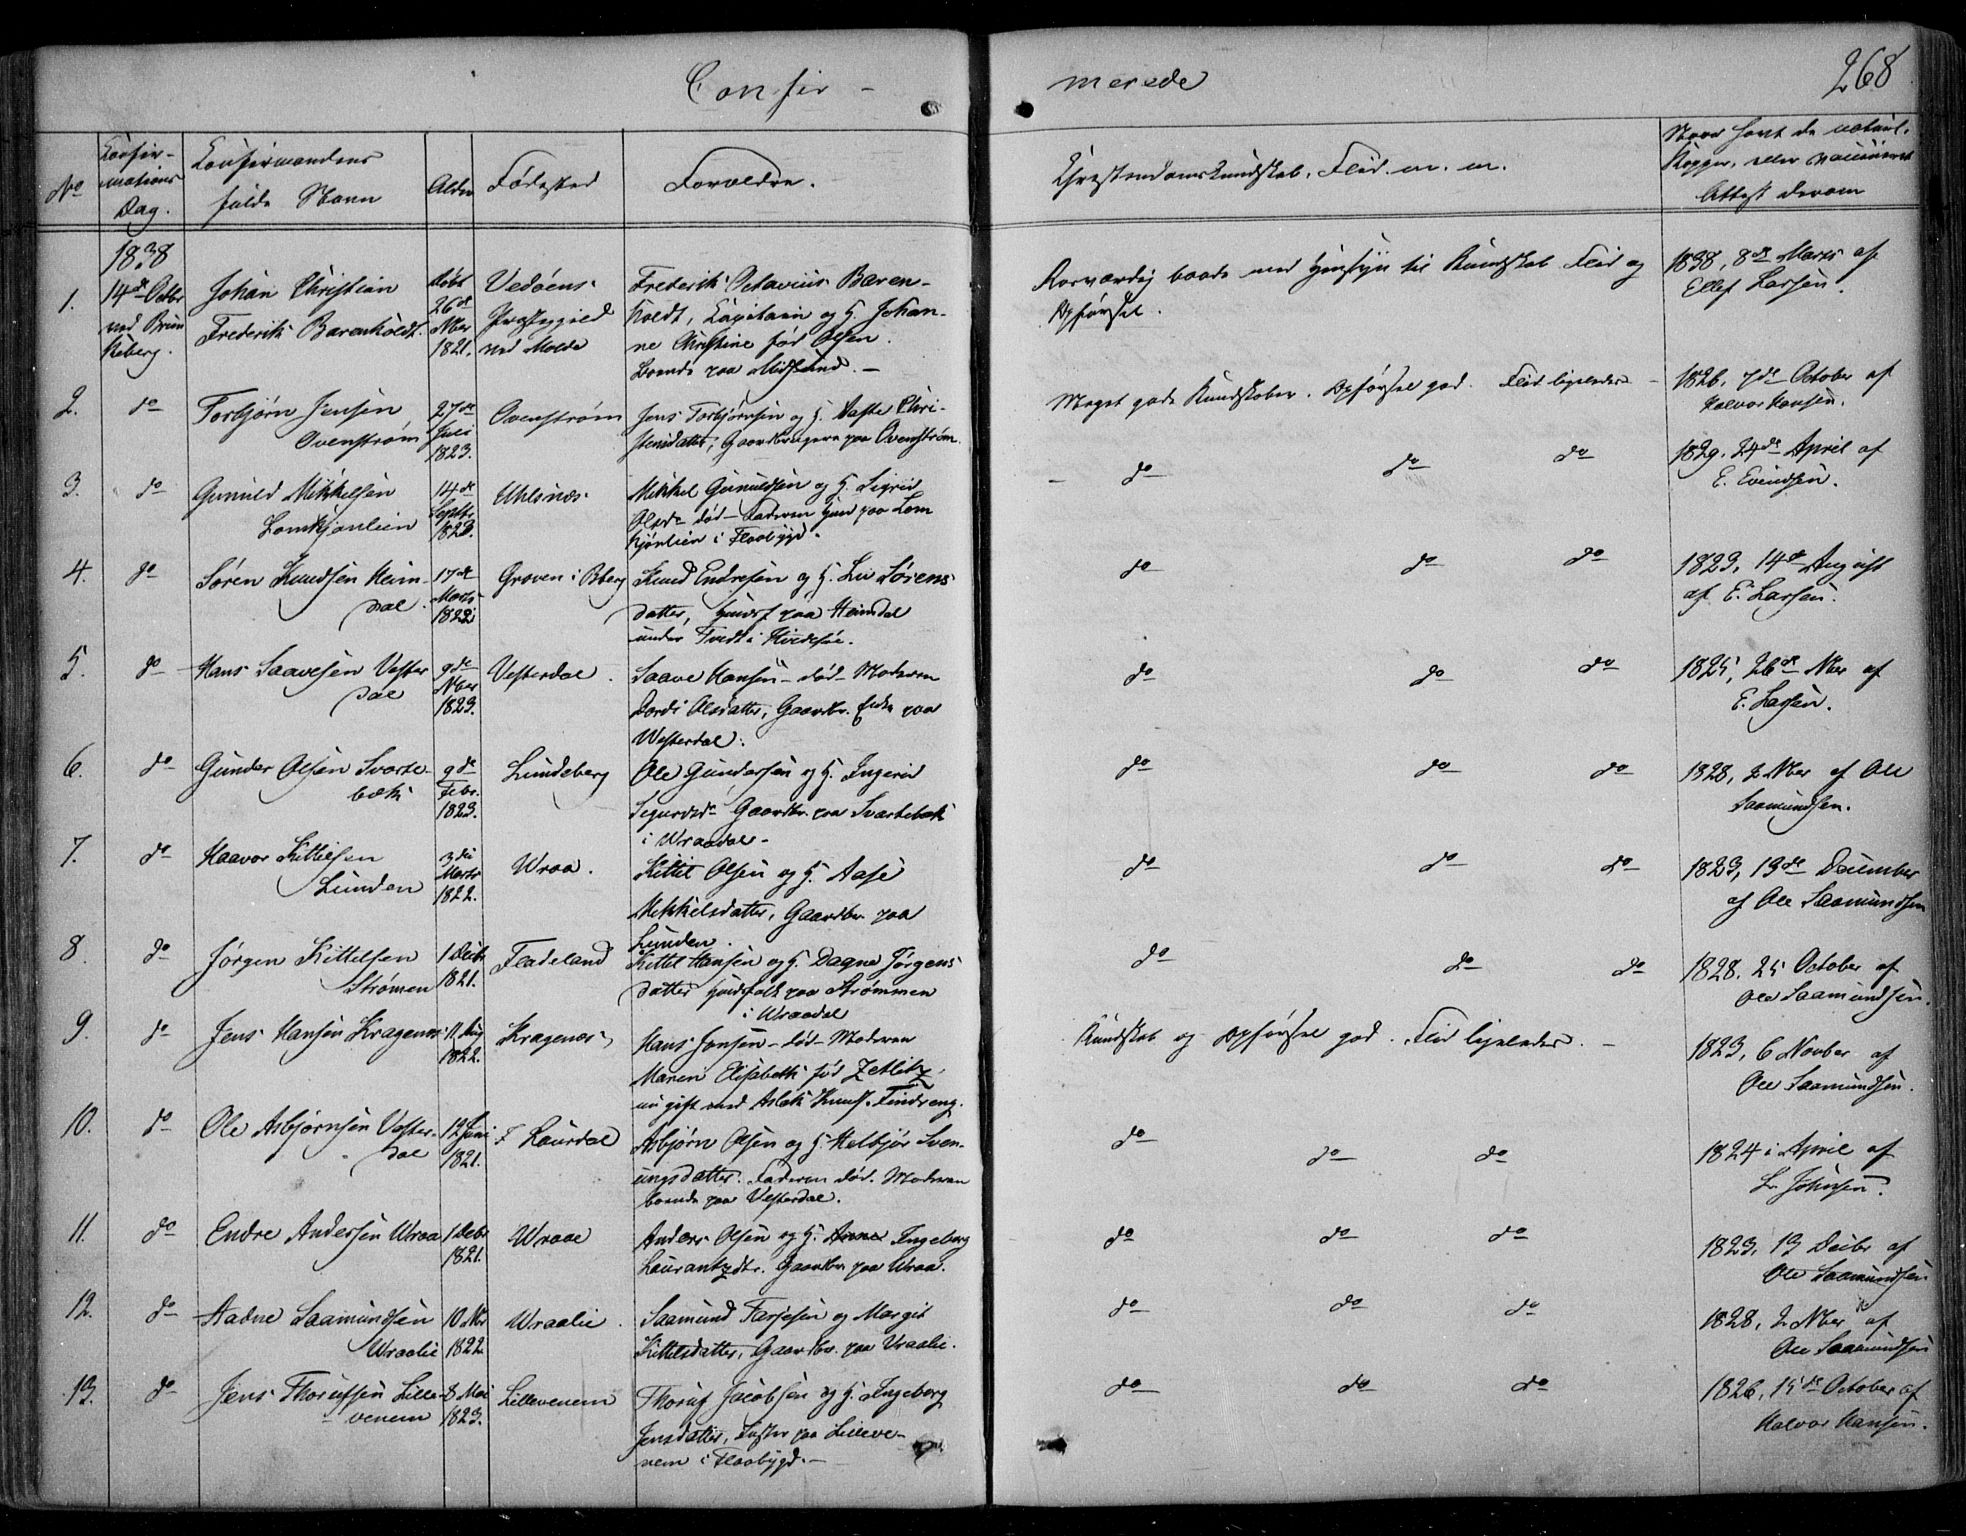 Confir - merede
268
No
Confir-
mations
Dag.
Confirmandens
fulde Navn
Alder
Fødested
Forældre.
Christendomskundskab, Flid. m. m.
Naar havt de naturl.
Kopper, eller vaccineret
Attest derom
1838
1.
14de Octbr
ved Brun
keberg.
Johan Christian
Frederik Barenholdt.
døbt
26de
Nber
1821.
Vedøens
Præstegield
ved Molde
Frederik Octavius Baren-
holdt, Capitain og H. Johan-
ne Christine fød Olsen.
Boende paa Midsund. -
Roesværdig baade med Hensyn til Kundskab Flid og
Opførsel.
1838, 8de Marts af
Ellef Larsen.
2.
do
Torbjørn Jensen
Ovenstrøm
27de
Juli
1823.
Ovenstrøm
Jens Torbjørnsen og H. Aaste Chri-
stensdatter, Gaardbrugere paa Ovenstrøm.
Meget gode Kundskaber. Opførsel god. Flid ligeledes -
1826, 7de October af
Halvor Hansen.
3.
do
Gunuld Mikkelsen
Lomkjønlien
14de
Septbr
1823.
Uhlsnæs
Mikkel Gunuldsen og H. Sigrid
Olsdr død - Faderen Huusm paa Lom
kjønlien i Flaabygd.
- do do do
1829. 24de April af
E. Evindsen.
4.
do
Søren Knudsen Heim-
dal.
17de
Marts
1822.
Groven i Bberg
Knud Endresen og H. Liv Sørens
datter, Huusf paa Heimdal
under Tvedt i Hvidesøe.
do do do
1823, 14de August
af E. Larsen.
5.
do
Hans Saavesen Vester
dal
9de
Nber
1823.
Vesterdal.
Saave Hansen - død - Moderen
Dordi Olsdatter, Gaardbr. Enke paa
Westerdal.
do do do
1825, 26de Nber af
E. Larsen.
6.
do
Gunder Olsen Svarte-
bæk
9de
Febr.
1823.
Lundeberg
Ole Gundersen og H. Ingerid
Sigurdsdr Gaardbr. paa Svartebæk
i Wraadal -
do do do
1828, 2 Nber af Ole
Saamundsen.
7.
do
Haavor Kittilsen
Lunden
3die
Marts
1822.
Wraa.
Kittil Olsen og H. Aase
Mikkelsdatter, Gaardbr. paa
Lunden.
do do do
1823, 13de December
af Ole Saamundsen
8.
do
Jørgen Kittelsen
Strømen
1 Decbr
1821.
Fladeland
Kittil Hansen og H. Dagne Jørgens
datter Huusfolk paa Strømmen
i Wraadal
do do do
1828. 25 October af
Ole Saamundsen.
9.
do
Jens Hansen Kragenæs
11 Aug
1822.
Kragenæs
Hans Jensen - død - Moderen
Maren Elisabeth fød Zetlitz,
nu gift med Aslak Knuds. Findreng.
Kundskab og Opførsel god. Flid ligeledes. -
1823, 6 Novber af
Ole Saamundsen.
10.
do
Ole Asbjørnsen Vester-
dal
12 Juni
1821.
Laurdal
Asbjørn Olsen og H. Helbjør Sven-
ungsdatter. Faderen død. Moderen
boende paa Vesterdal.
do do do
1824 i April af
L. Johnsen.
11.
do
Endre Andersen Wraa
1 Decbr
1821.
Wraae
Anders Olsen og H. Anne Ingeborg
Laurantzdtr. Gaardbr. paa Wraa.
do do do
1823, 13 Decbr af
Ole Saamundsen
12.
do
Aadne Saamundsen
Wraalie
10 Nbr
1822
Wraalie.
Saamund Tarjesen og Margit
Kittelsdatter, Gaardbr. paa Vraalie.
do do do
1828, 2 Nber af
Ole Saamundsen
13.
do
Jens Thorufsen Lille-
venem
8 Mai
1823.
Lillevenem
Thoruf Jacobsen og H. Ingeborg
Jensdatter, Inster paa Lilleve-
nem i Flaabygd. -
do do do
1826, 15de October af
Halvor Hansen.